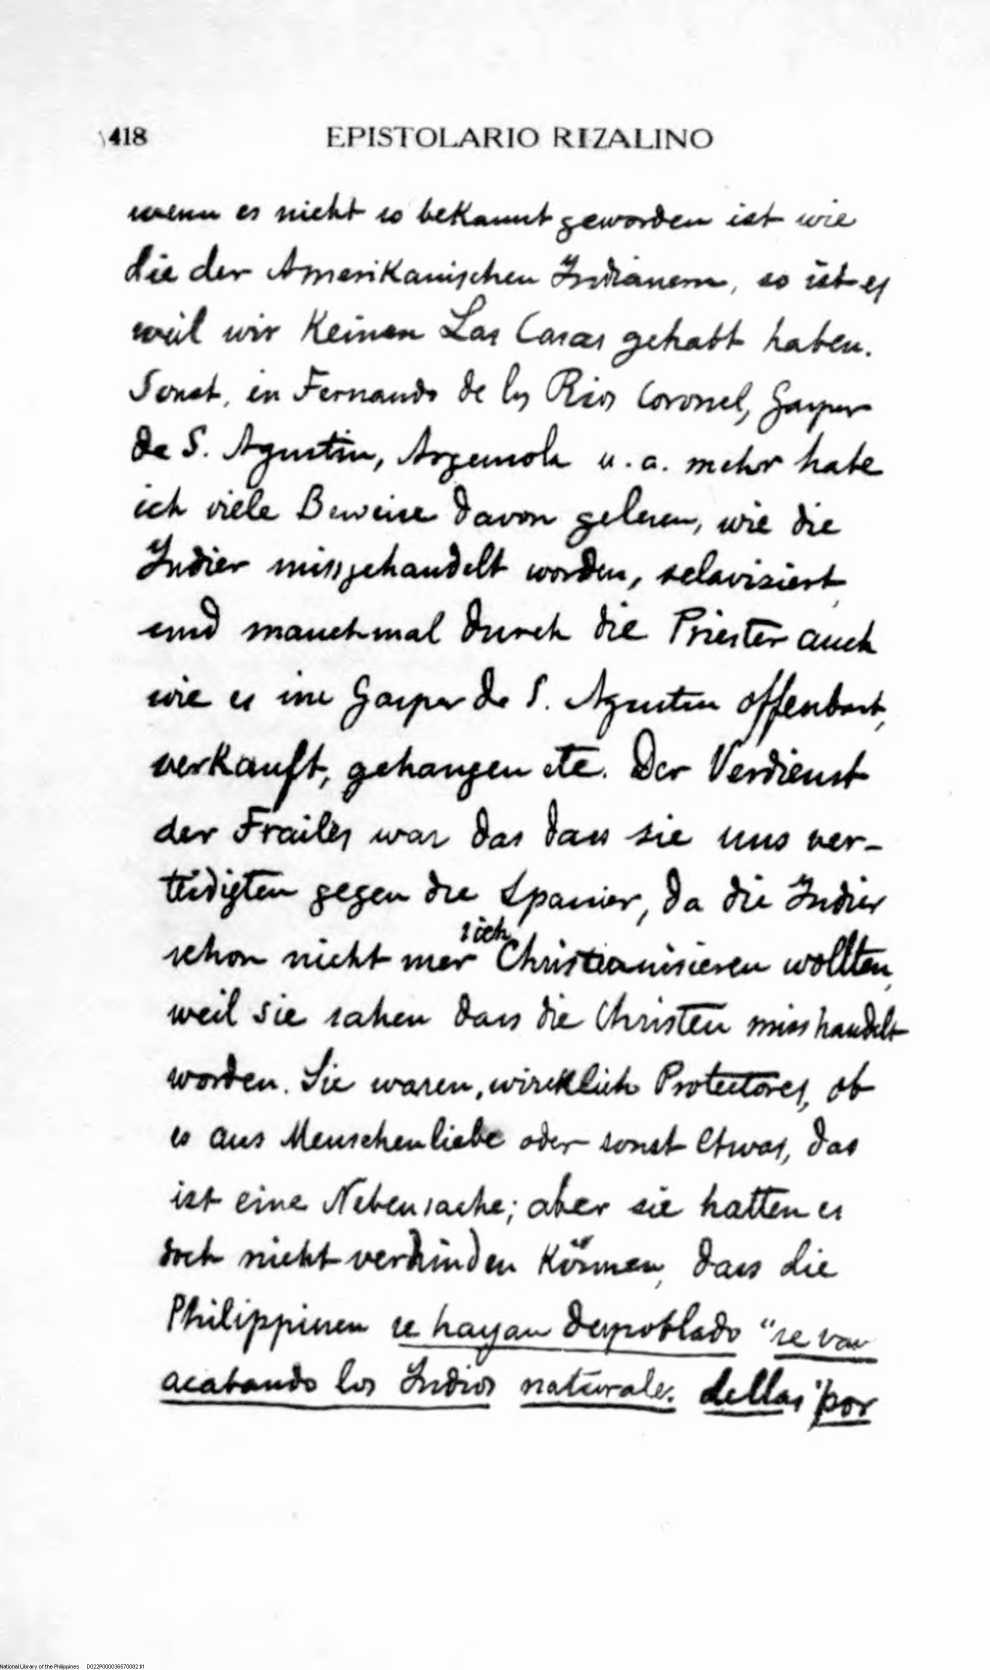 418 EPISTOLARIO RIZALINO
wenn es nicht so bekannt geworden ist wie
die der Amerikanischen Indianern, so ist es
weil wir Keinen Las Casas gehabt haben.
Sonst, in Fernando de los Rios Coronel, Gaspar
de S. Agustin, Argensola u. a. mehr habe
ich viele Beweise davon gelesen, wie die
Indier missgehandelt worden, sclavisiert,
und manchmal durch die Priester auch
wie es im Gaspar de S. Agustin offenbart,
verkauft, gehangen etc. Der Verdienst
der Frailes war das dass sie uns ver-
teidigten gegen die Spanier, da die Indier
schon nicht mer sich Christianisieren wollten,
weil sie sahen dass die Christen misshandelt
worden. Sie waren, wircklich Protectores, ob
es aus Menschenliebe oder sonst Etwas, das
ist eine Nebensache; aber sie hatten es
doch nicht verhinden Können, dass die
Philippinen se hayan despoblado "se van
acabando los Indios naturales dellas" por
National Library of the Philippines